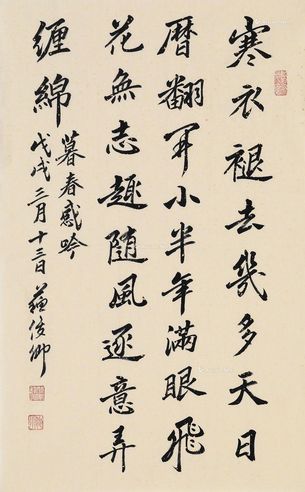 寒衣褪去幾多天日
曆翻開小半年滿眼飛
花無志趣隨風逐意弄
纏綿
暮春感吟
戊戌三月十三日蘇俊卿